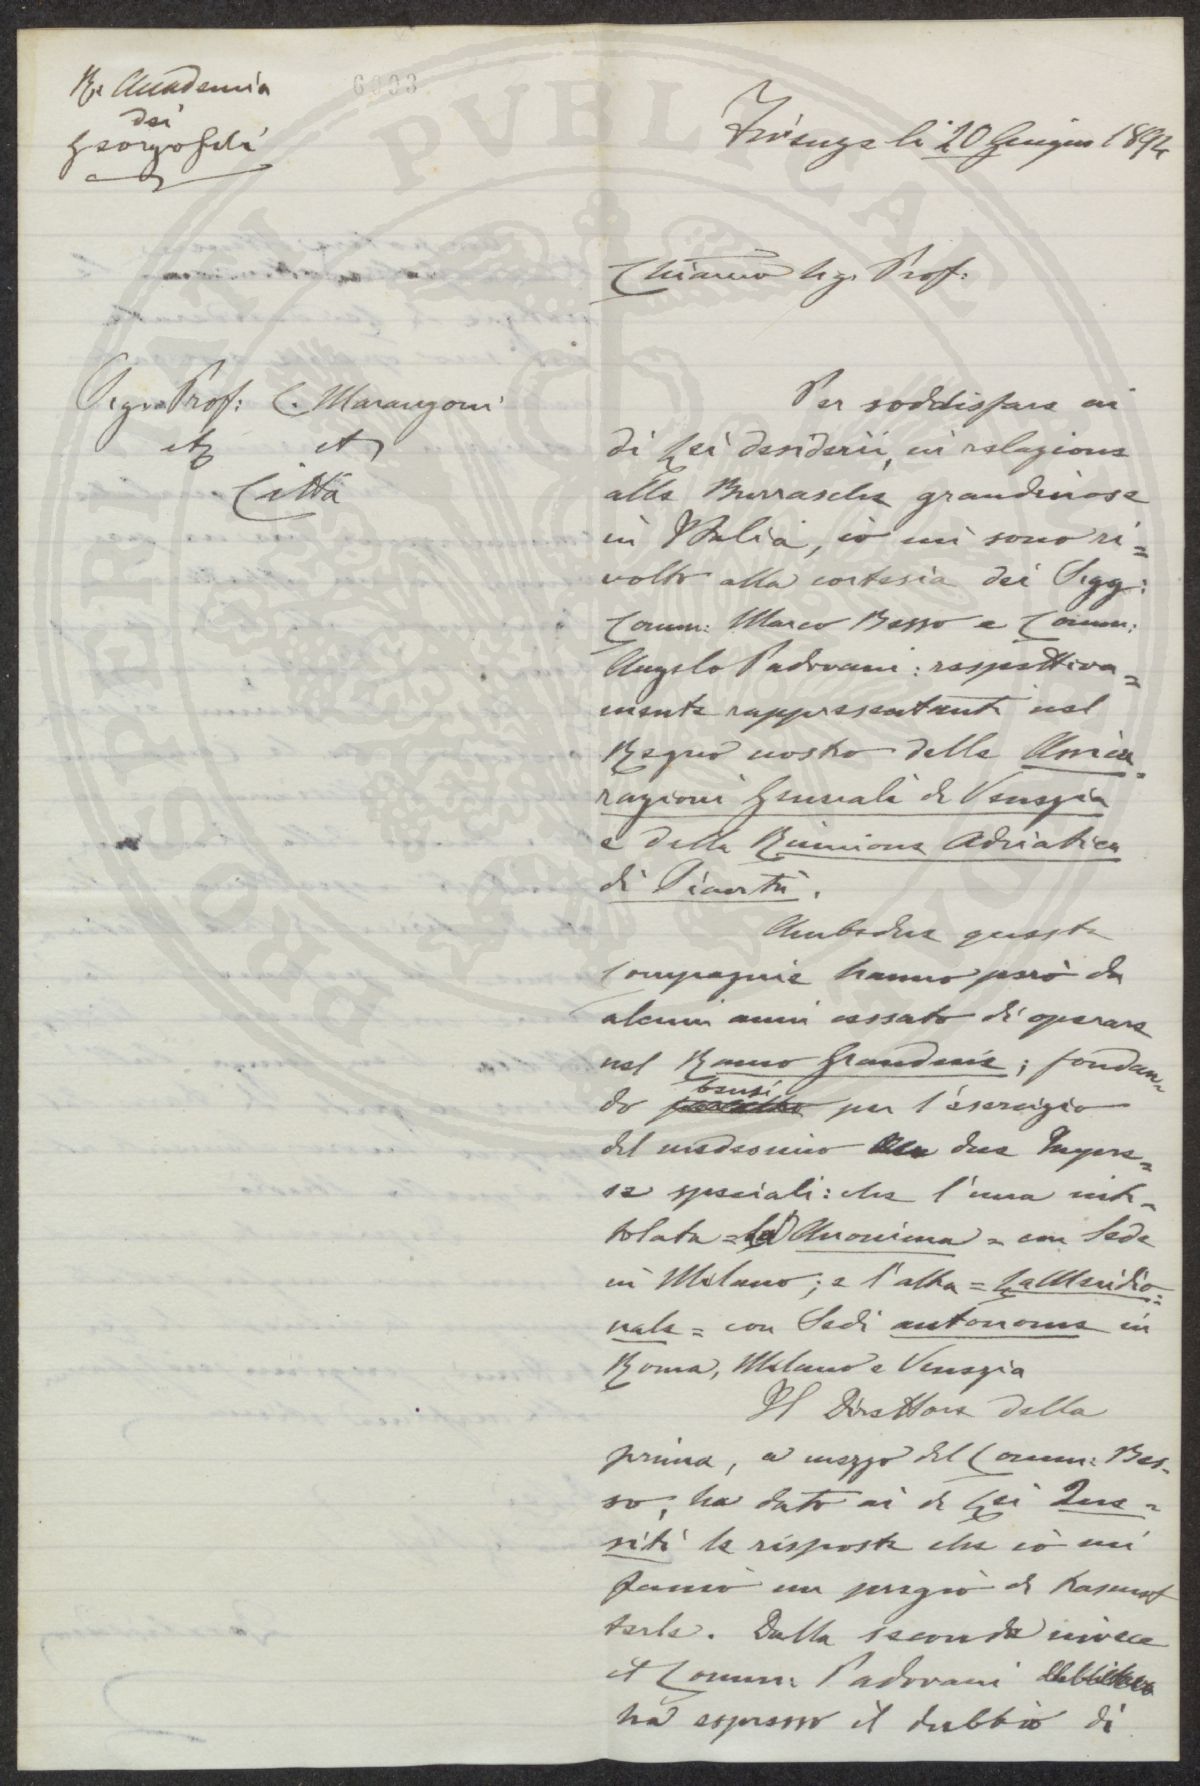 R. Accademia
dei
Georgofili
6003
Firenze li 20 Giugno 1894
Chiarmo Sig. Prof:
Sigr. Prof: C. Marangoni
Città
Per soddisfare ai
di Lei desiderii, in relazione
alle Burrasche grandinose
in Italia, io mi sono ri=
volto alla cortesia dei Sigg:
Comm: Marco Besso e Comm:
Angelo Padovani: respettiva=
mente rappresentanti nel
Regno nostro delle Assicu=
razioni Generali di Venezia
e della Riunione Adriatica
di Sicurtà.
Ambedue queste
Compagnie hanno però da
alcuni anni cessato di operare
nel Ramo Grandine; fondan=
do bensì per l'esercizio
del medesimo due Impre=
se speciali: che l'una inti=
tolata = Anonima = con Sede
in Milano; e l'altra = La Meridio=
nale = con Sedi autonome in
Roma, Milano e Venezia
Il Direttore della
prima, a mezzo del Comm: Bes=
so, ha dato ai di Lei Que=
siti le risposte che io mi
faccio un pregio di trasmet
terle. Dalla seconda invece
il Comm: Padovani
ha espresso il dubbio di
PROSPERITATI PVBLICAE